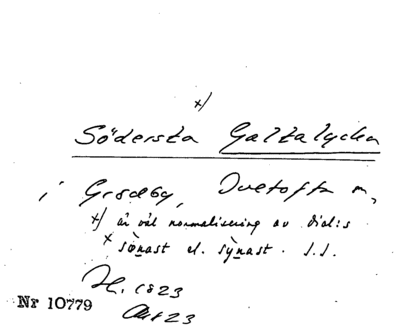 x)
Södersta Galtalyckan
i Gessby, Duetofta n,
x) är väl normalisering av dial:s
x sönast el. synast. S.S.
H. 1823
Akt 23
Nr 10779